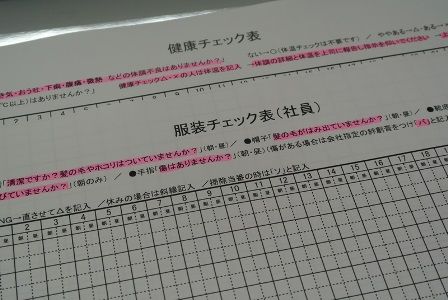 健康チェック表
き気・おう吐・下痢・腹痛・微熱 などの体調不良はありませんか? ない→○(体温チェックは不要です) / ややある→△・ある→
℃以上)はありませんか? 健康チェック△・×の人は体温を記入 →体調の詳細と体温を上司に報告し指示を仰いでください
服装チェック表(社員)
清潔ですか?髪の毛やホコリはついていませんか?」(朝・昼) / ●帽子「髪の毛がはみ出ていませんか?」(朝・昼) /
びていませんか?」(朝のみ) / ●手指「傷はありませんか?」(朝・昼)(傷がある場合は会社指定の絆創膏をつけ「バ」と記入)
NG→直させて△を記入 /休みの場合は斜線記入 /掃除当番の時は「ソ」と記入
2 3 4 5 6 7 8 9 10 11 12 13 14 15 16 17 18
朝 昼 朝 昼 朝 昼 朝 昼 朝 昼 朝 昼 朝 昼 朝 昼 朝 昼 朝 昼 朝 昼 朝 昼